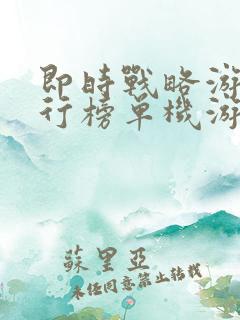 即時戰略游
行榜單機游
蘇里亞
未经同意禁止转载